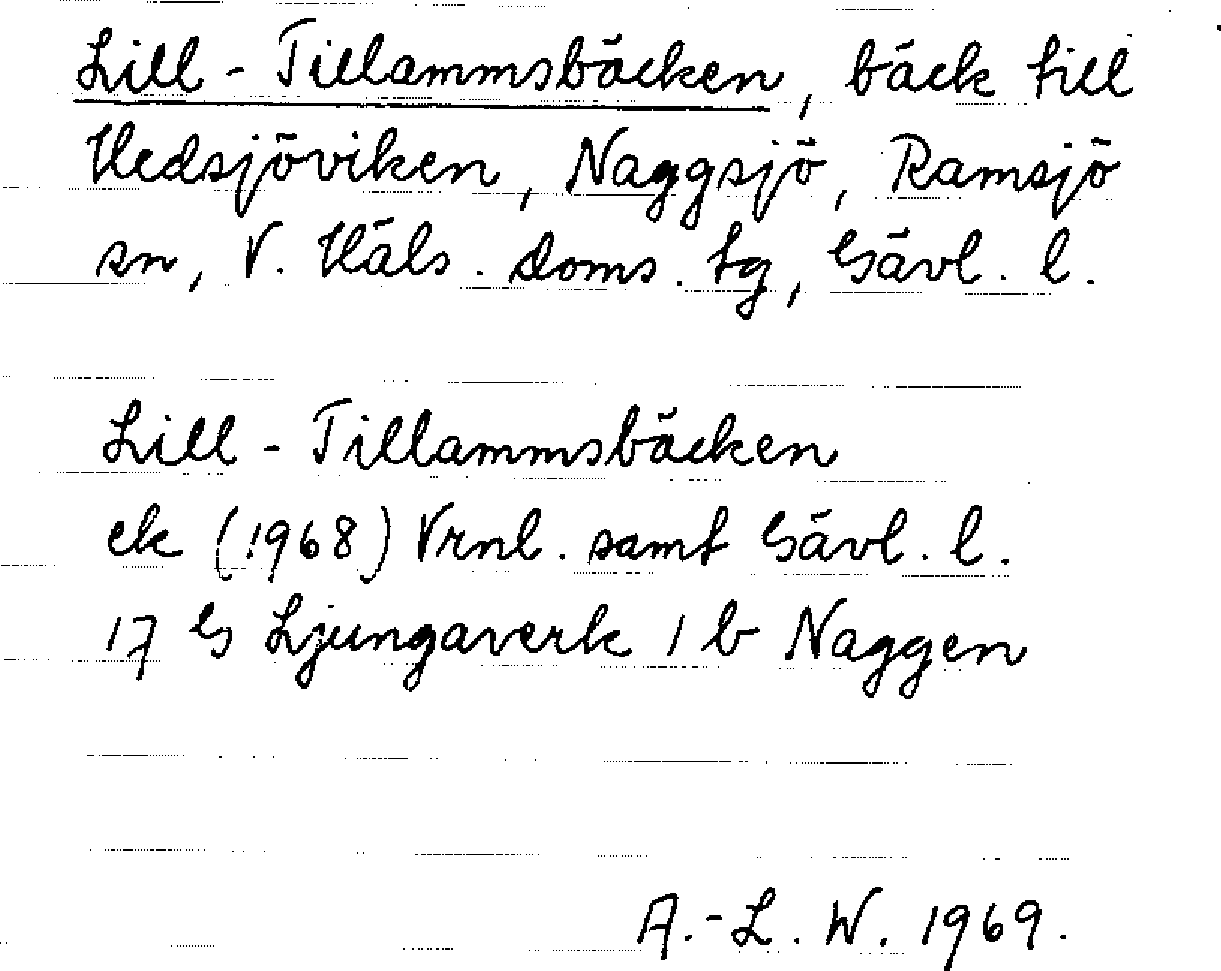 Lill-Tillammsbäcken, bäck till
Hedsjöviken, Naggsjö, Ramsjö
sn, V. Häls. doms. tg, Gävl. l.
Lill-Tillammsbäcken
ek (1968) Vrnl. samt Gävl. l.
17 G Ljungaverk 1 b Naggen
A.-L. W. 1969.